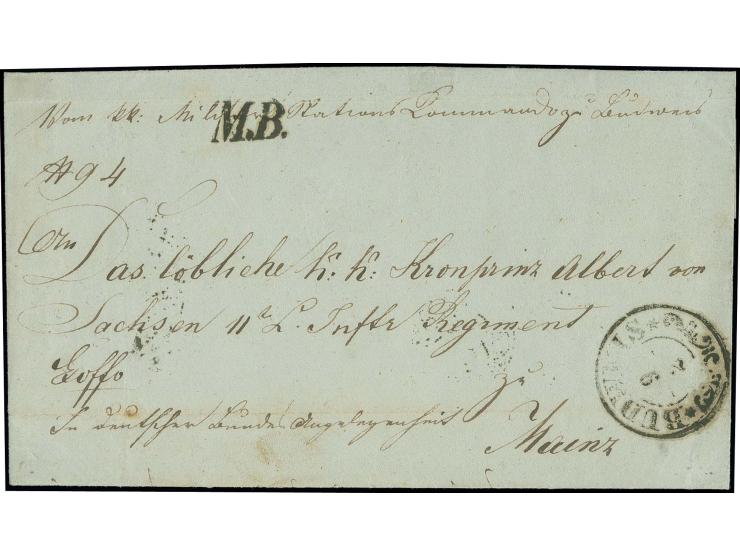 Vom kk: Militär Stations Commando zu Budweis
M.B.
94
An
Das löbliche k: k: Kronprinz Albert von
Sachsen 11t L. Inftr Regiment
zu
In deutscher Bundes Angelegenheit
Mainz
BUDWEIS